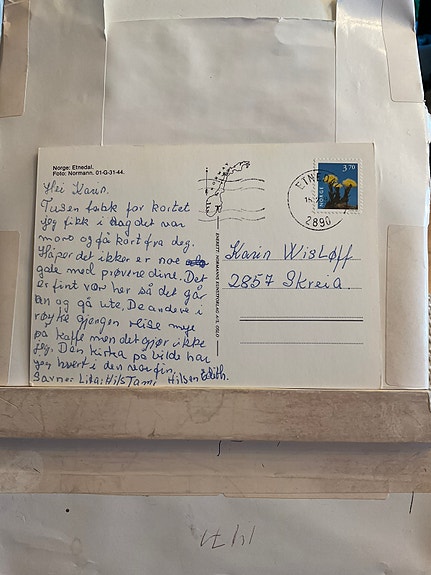 Norge: Etnedal.
Foto: Normann. 01-G-31-44.
Hei Karin.
Tusen takk for kortet
Jeg fikk i dag det var
moro og få kort fra deg.
Håper det ikke er noe
gale med prøvene dine. Det
er fint vær her så det går
an og gå ute. De andre i
røyke gjengen reise mye
på kaffe men det gjør ikke
jeg. Den kirka på bilde har
jeg vært i den var fin.
Savner Hils Tami Hilsen Edith.
ENERETT: NORMANNS KUNSTFORLAG A/S, OSLO
ETNEDAL
2890
NORGE
3.70
Karin Wisløff
2857 Skreia.